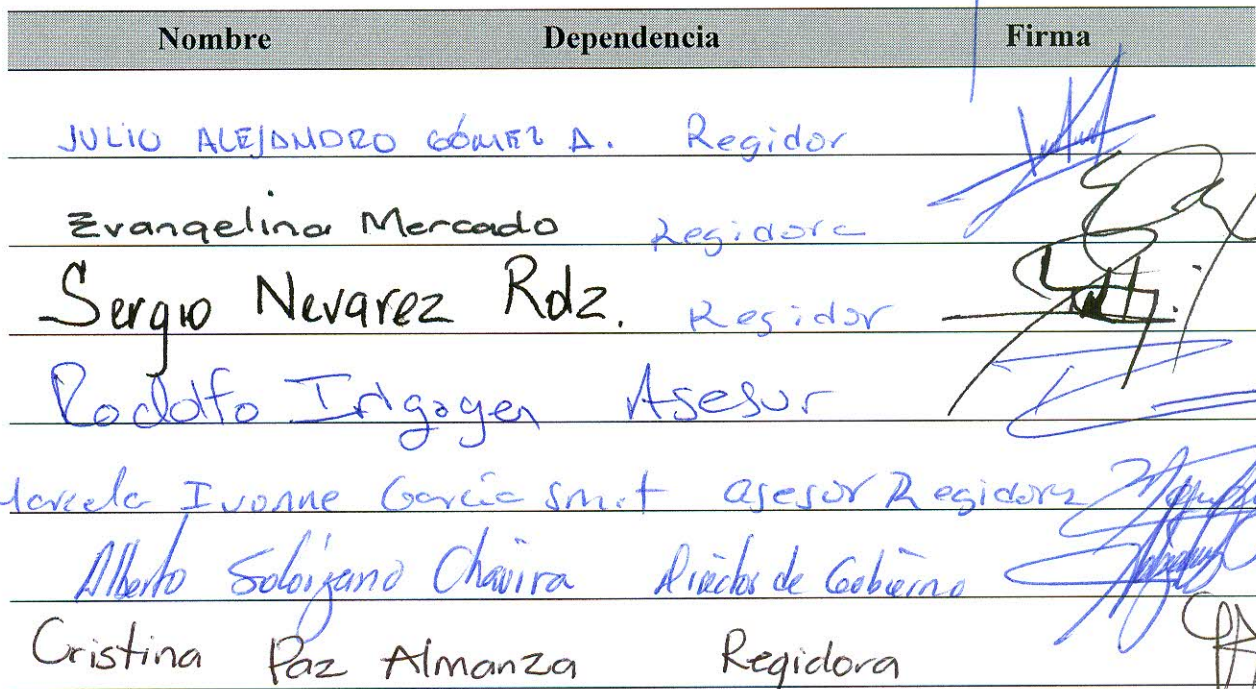 Nombre Dependencia Firma
JULIO ALEJANDRO GÓMEZ A. Regidor
Evangelina Mercado Regidora
Sergio Nevarez Rdz. Regidor
Rodolfo Irigoyen Asesor
Marcela Ivonne García Smit asesor Regidora
Alberto Solórzano Chavira Director de Gobierno
Cristina Paz Almanza Regidora